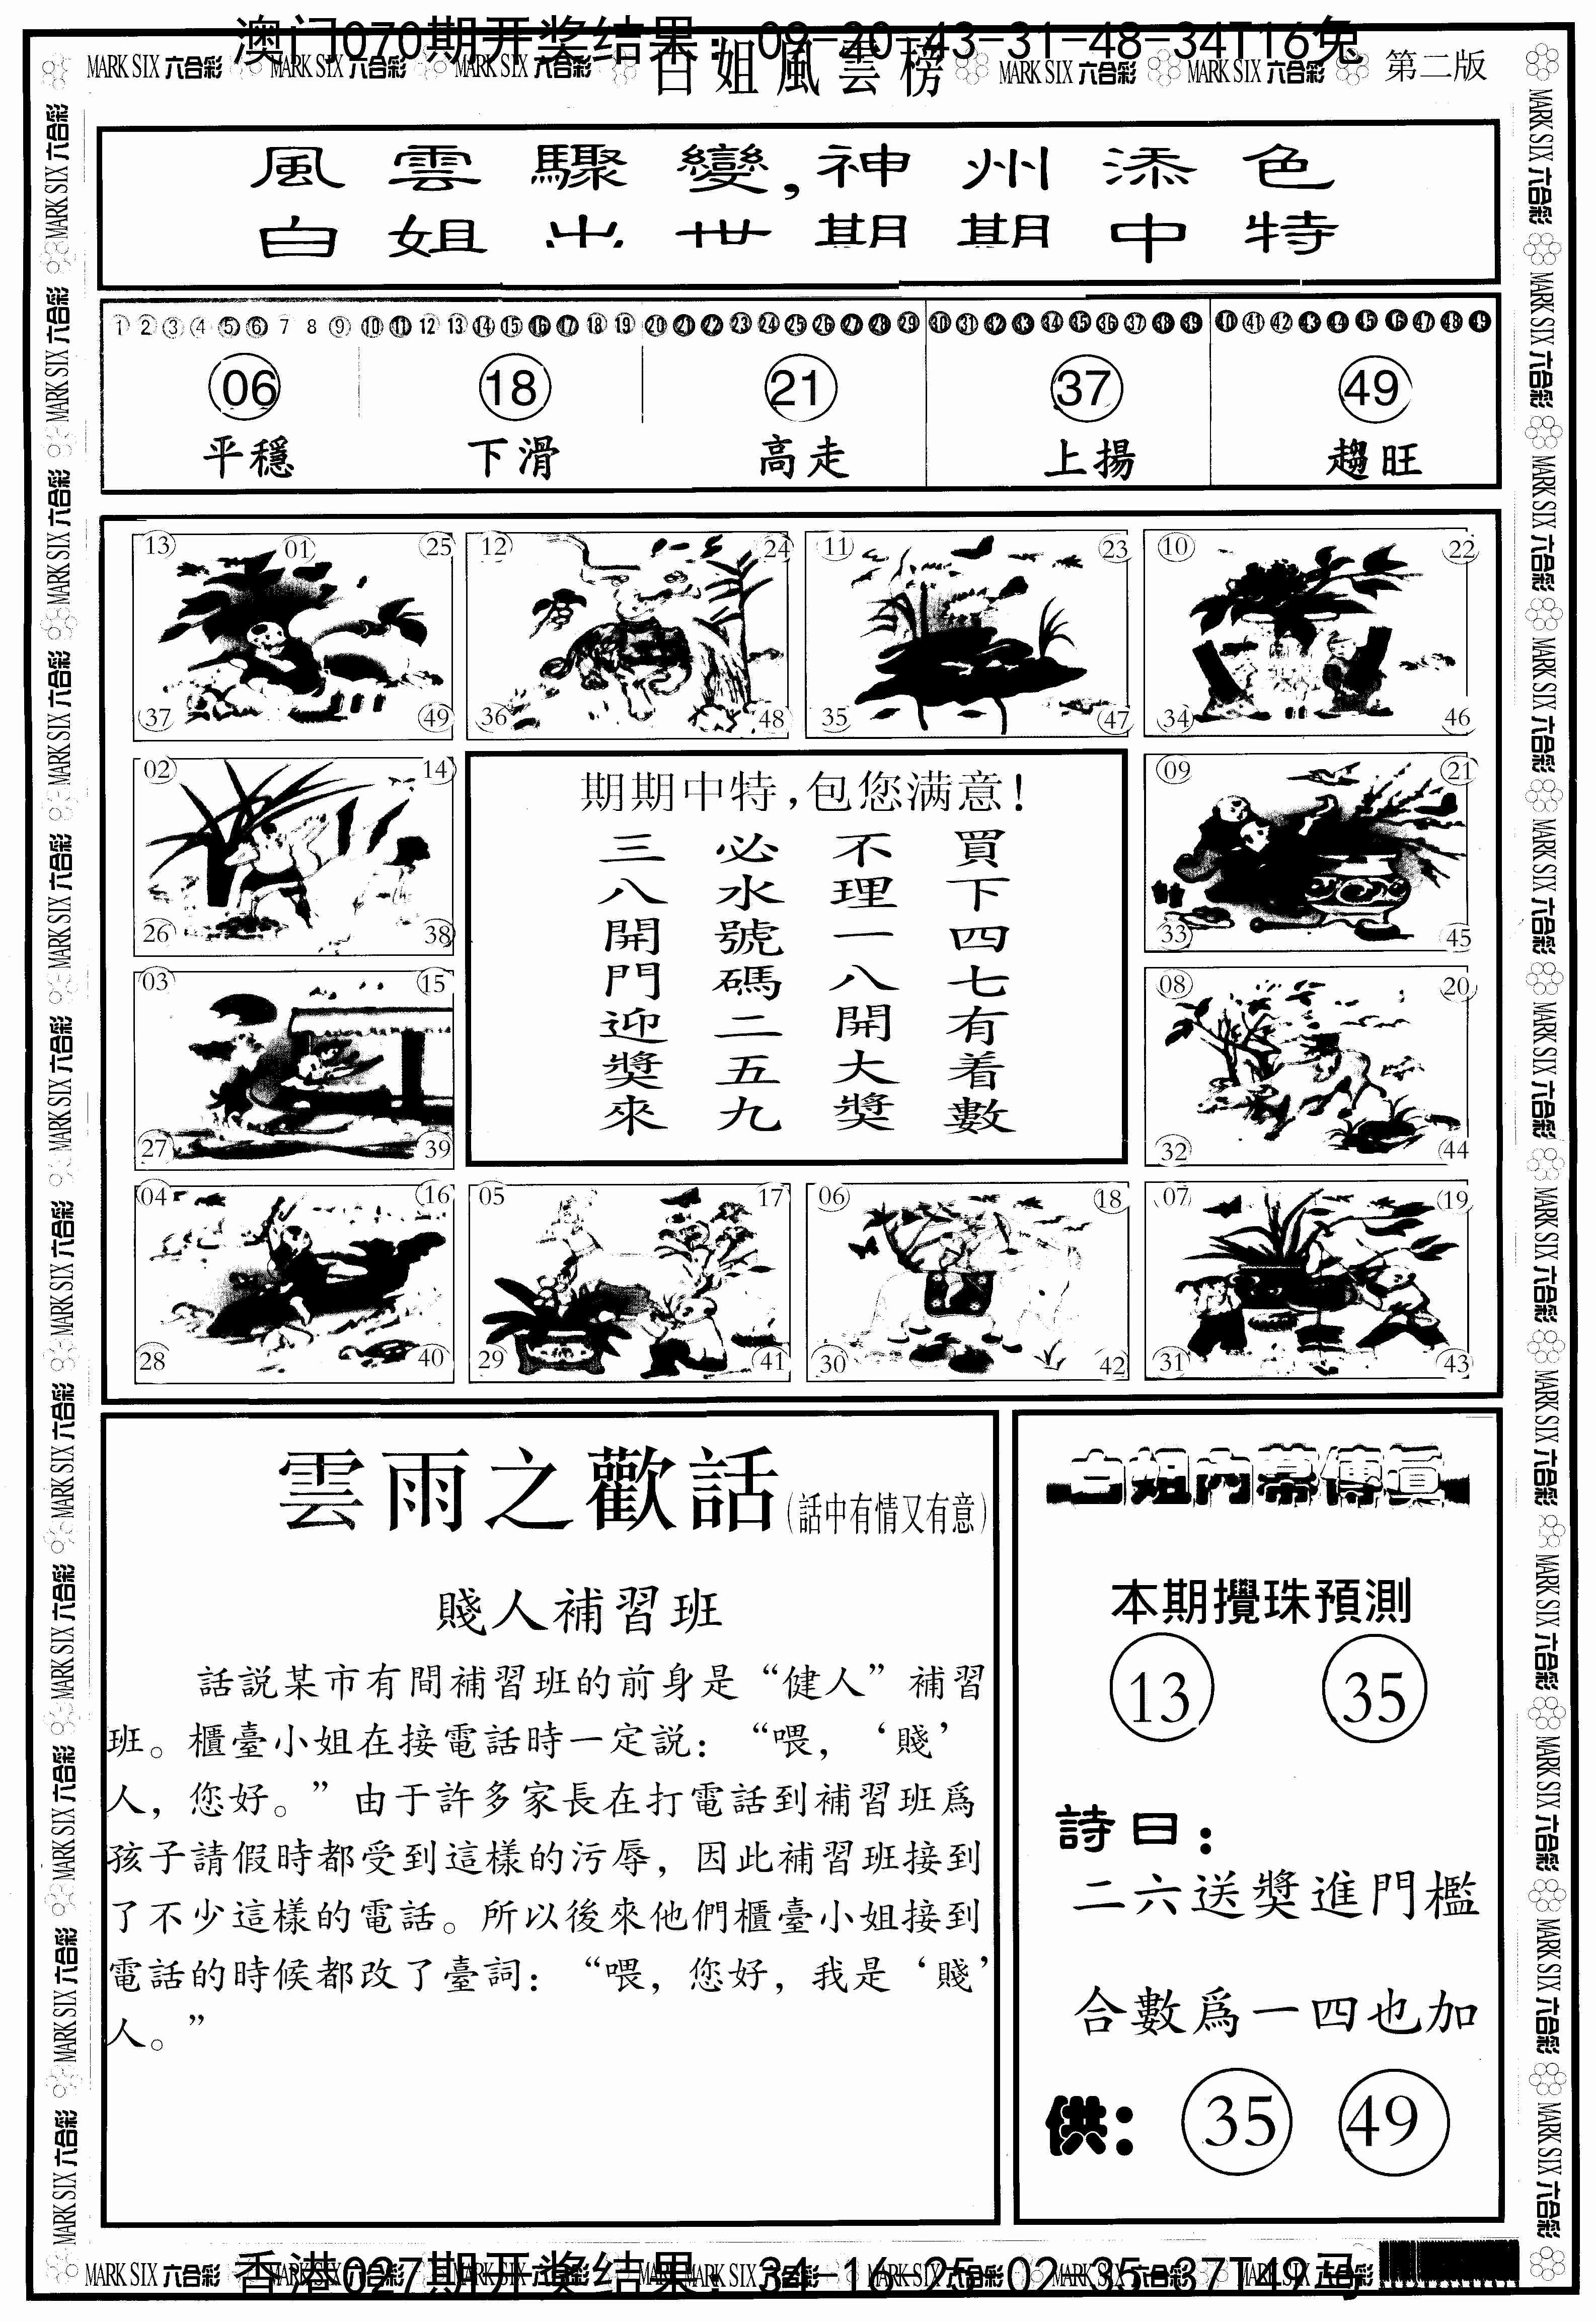 澳门070期开奖结果：09-20-43-31-48-34T16兔
MARK SIX 六合彩 MARK SIX 六合彩 MARK SIX 六合彩 白姐風雲榜 MARK SIX 六合彩 MARK SIX 六合彩 第二版
風雲驟變,神州添色
白姐出世期期中特
1 2 3 4 5 6 7 8 9 10 11 12 13 14 15 16 17 18 19 20 21 22 23 24 25 26 27 28 29 30 31 32 33 34 35 36 37 38 39 40 41 42 43 44 45 46 47 48 49
06 18 21 37 49
平穩 下滑 高走 上揚 趨旺
13 01 25 12 24 11 23 10 22
37 49 36 48 35 47 34 46
02 14
26 38
03 15
27 39
期期中特,包您满意!
買下四七有着數
不理一八開大獎
必水號碼二五九
三八開門迎獎來
09 21
33 45
08 20
32 44
04 16 05 17 06 18 07 19
28 40 29 41 30 42 31 43
雲雨之歡話(話中有情又有意)
賤人補習班
話説某市有間補習班的前身是“健人”補習
班。櫃臺小姐在接電話時一定説：“喂，‘賤’
人，您好。”由于許多家長在打電話到補習班爲
孩子請假時都受到這樣的污辱，因此補習班接到
了不少這樣的電話。所以後來他們櫃臺小姐接到
電話的時候都改了臺詞：“喂，您好，我是‘賤’
人。”
白姐内幕傳真
本期攪珠預測
13 35
詩曰：
二六送獎進門檻
合數爲一四也加
供： 35 49
香港027期开奖结果：34-16-25-02-35-37T49马
MARK SIX 六合彩 MARK SIX 六合彩 MARK SIX 六合彩 MARK SIX 六合彩 MARK SIX 六合彩 MARK SIX 六合彩 MARK SIX 六合彩